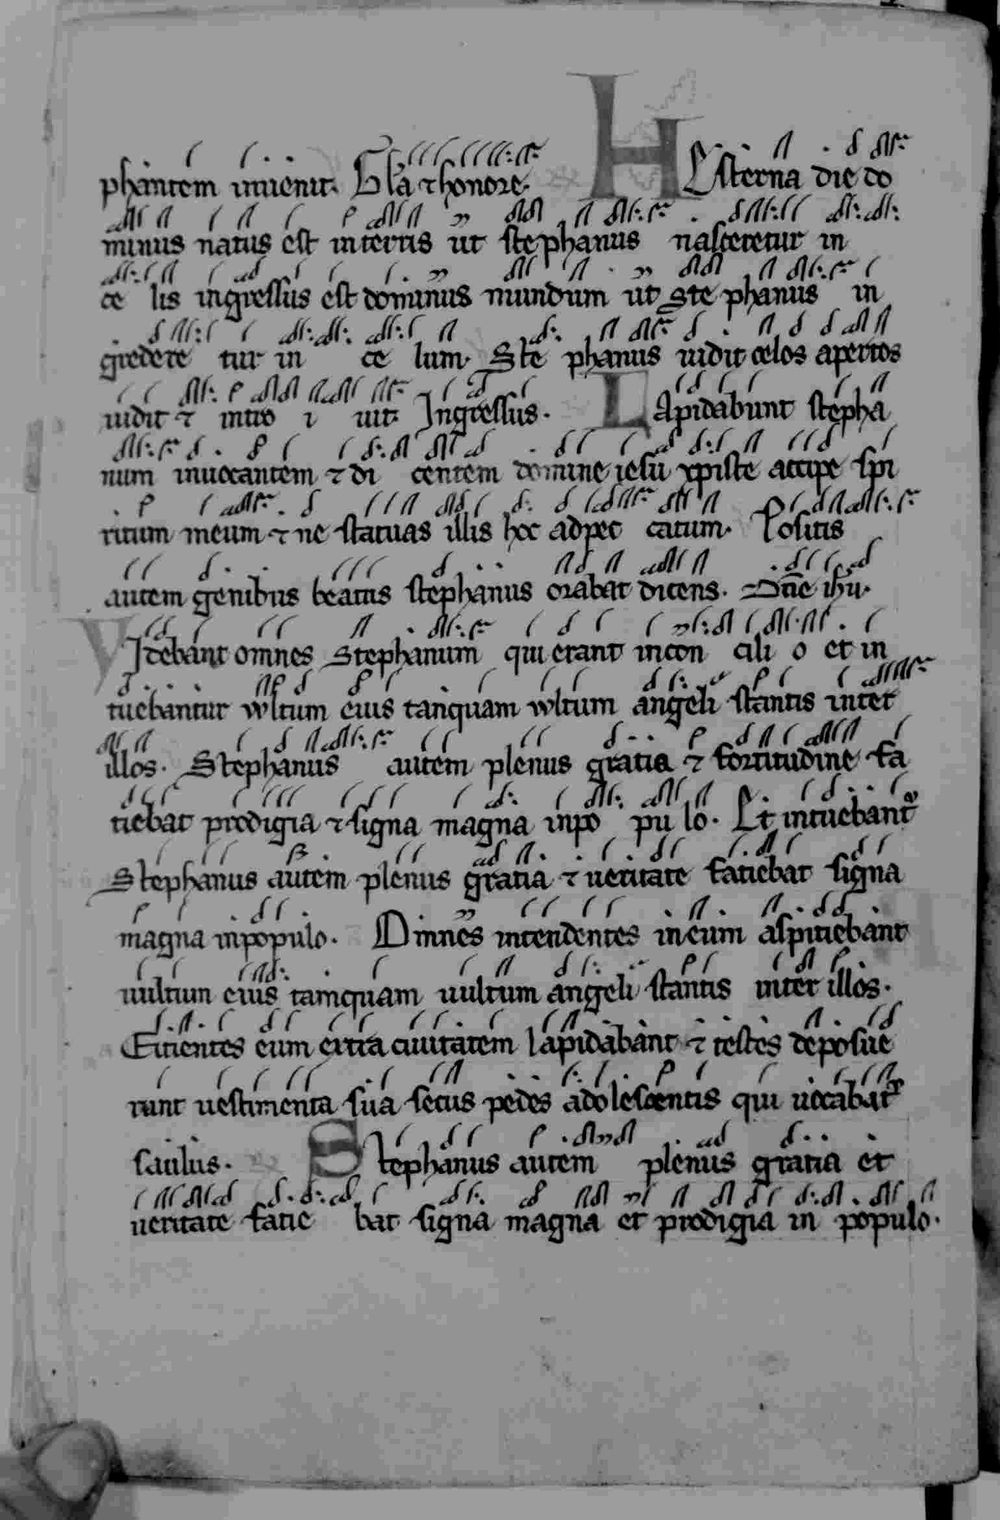 phantem inuenit. Gl̄a ⁊ honore. HEsterna die do
minus natus est interris ut stephanus nasceretur in
ce lis ingressus est dominus mundum ut ste phanus in
gredere tur in ce lum. Ste phanus uidit celos apertos
uidit ⁊ intro i uit. Ingressus. LApidabunt stepha
num inuocantem ⁊ di centem domine iesu xpiste accipe spi
ritum meum ⁊ ne statuas illis hoc ad pec catum. Positis
autem genibus beatus stephanus orabat dicens. Dn̄e ihū.
VIdebant omnes Stephanum qui erant in con cili o et in
tuebantur vvltum eius tanquam wltum angeli stantis inter
illos. Stephanus autem plenus gratia ⁊ fortitudine fa
ciebat prodigia ⁊ signa magna inpo pu lo. Et intuebant
Stephanus autem plenus gratia ⁊ ueritate faciebat signa
magna inpopulo. Omnes intendentes in eum aspiciebant
uultum eius tamquam uultum angeli stantis inter illos.
Eicientes eum extra ciuitatem lapidabant ⁊ testes deposue
runt uestimenta sua secus pedes adolescentis qui uocabat
saulus. Stephanus autem plenus gratia et
ueritate facie bat signa magna et prodigia in populo.